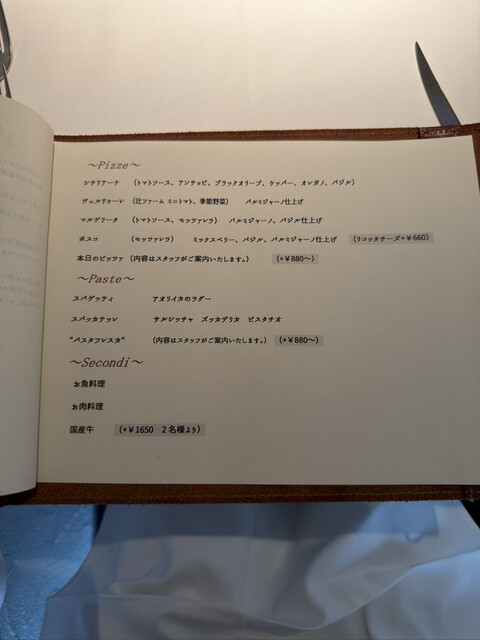 ～Pizze～
シチリアーナ （トマトソース、アンチョビ、ブラックオリーブ、ケッパー、オレガノ、バジル）
ヴェルドゥーレ （辻ファーム ミニトマト、季節野菜） パルミジャーノ仕上げ
マルゲリータ （トマトソース、モッツァレラ） パルミジャーノ、バジル仕上げ
ボスコ （モッツァレラ） ミックスベリー、バジル、パルミジャーノ仕上げ （リコッタチーズ+￥660）
本日のピッツァ （内容はスタッフがご案内いたします。） （+￥880～）
～Paste～
スパゲッティ アオリイカのラグー
スパッカテッレ サルシッチャ ズッカデリカ ピスタチオ
“パスタフレスカ” （内容はスタッフがご案内いたします。） （+￥880～）
～Secondi～
お魚料理
お肉料理
国産牛 （+￥1650 2名様より）